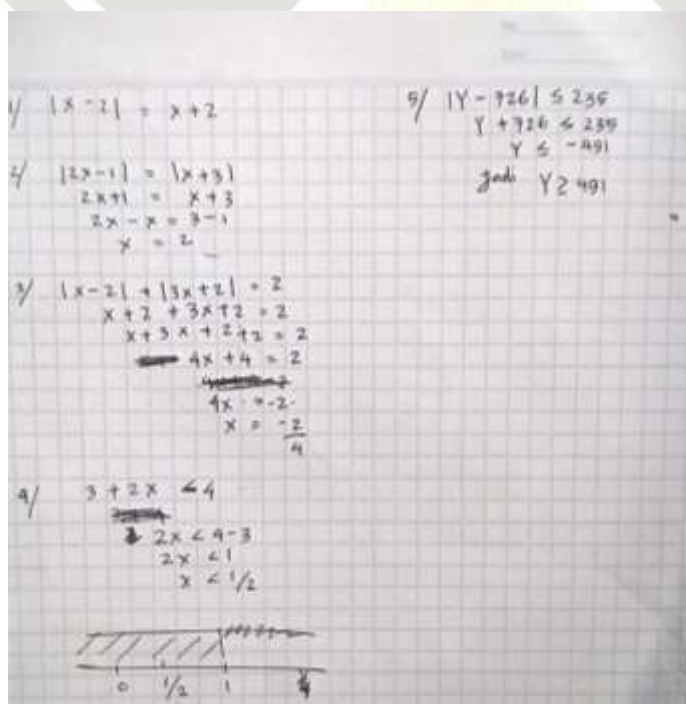 1/ |x-2| = x+2
2/ |2x-1| = |x+3|
2x+1 = x+3
2x-x = 3-1
x = 2
3/ |x-2| + |3x+2| = 2
x+2 + 3x+2 = 2
x+3x+2+2 = 2
4x+4 = 2
4x = -2
x = -2/4
4/ 3+2x < 4
2x < 4-3
2x < 1
x < 1/2
0 1/2 1
5/ |Y-726| ≤ 235
Y+726 ≤ 235
Y ≤ -491
Jadi Y ≥ 491